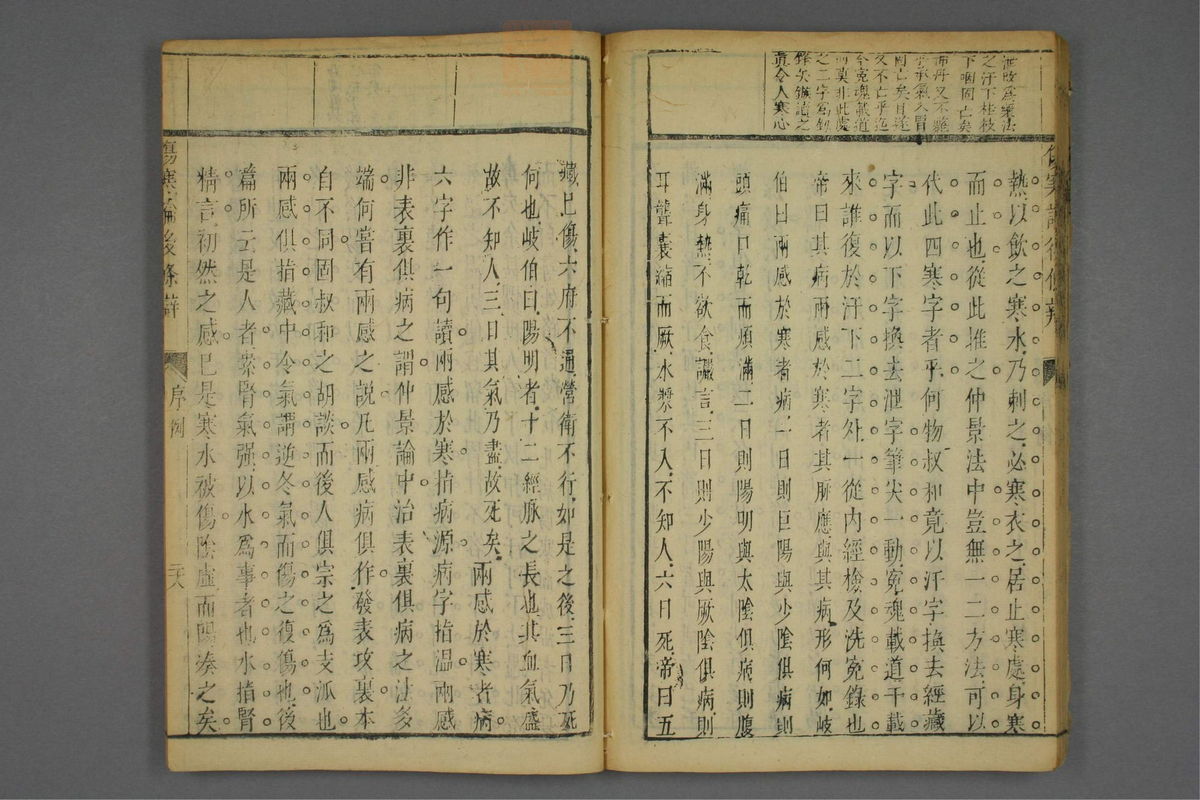 泄改爲藥法
之汗下桂枝
下咽固亡矣
而眞非此處
之二字爲
鋒矣鎭讀之
眞令人寒心
熱以飮之寒水乃刺之必寒衣之居止寒處身寒
而止也從此堆之仲景法中豈無一二方法可以
代此四寒字者乎何物叔和竟以汗字換去經藏
字而以下字換去泄字筆尖一動寃魂載道千載
來誰復於汗下二字外一從内經檢及洗寃錄也
帝曰其病兩感於寒者其脉應與其病形何如岐
伯曰兩感於寒者病一日則巨陽與少陰俱病則
頭痛口乾而煩滿二日則陽明與太陰俱病則腹
滿身熱不欲食譫言三日則少陽與厥陰俱病則
耳聾囊縮而厥水漿不入不知人六日死帝曰五
藏已傷六府不通營衛不行如是之後三日乃死
何也岐伯曰陽明者十二經脉之長也其血氣盛
故不知人三日其氣乃盡故死矣兩感於寒者病
六字作一句讀兩感於寒指病源病字指溫兩感
非表裏俱病之謂仲景論中治表裏俱病之法多
端何嘗有兩感之說凡兩感病俱作發表攻裏本
自不同固叔和之胡談而後人俱宗之爲支派也
兩感俱指藏中令氣謂逆冬氣而傷之復傷也後
篇所云是人者素腎氣强以水爲事者也水指腎
精言初然之感已是寒水被傷陰虛而陽湊之矣
傷寒論後條辯
序例
二八